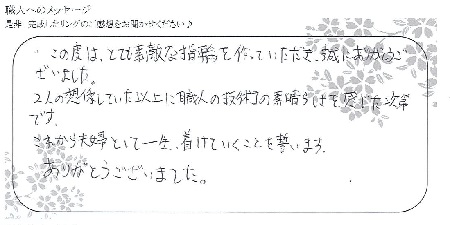 職人へのメッセージ
是非、完成したリングのご感想をお聞かせください♪
この度は、とても素敵な指輪を作っていただき、誠にありがとうご
ざいました。
2人の想像していた以上に職人の技術の素晴らしさを感じた次第
です。
これから夫婦として一生、着けていくことを誓います。
ありがとうございました。